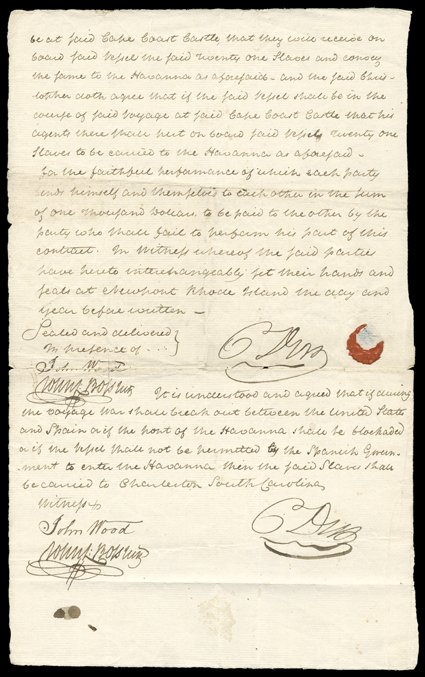 be at said Cape Coast Castle that they will receive on
board said Vessel the said Twenty one Slaves and convey
the same to the Havanna as aforesaid - and the said Chris-
topher doth agree that if the said Vessel shall be in the
course of said Voyage at said Cape Coast Castle that his
agents there shall put on board said Vessel Twenty one
Slaves to be carried to the Havanna as aforesaid -
for the faithful performance of which each party
binds himself and themselves to each other in the sum
of one thousand Dollars to be paid to the other by the
party who shall fail to perform his part of this
contract. In Witness whereof the said parties
have hereto interchangeably set their hands and
seals at Newport Rhode Island the day and
year before written -
Sealed and delivered
In presence of
John Wood
It is understood and agreed that if during
the voyage War shall break out between the United States
and Spain or if the port of the Havanna shall be blockaded
or if the Vessel shall not be permitted by the Spanish Govern-
ment to enter the Havanna then the said Slaves shall
be carried to Charleston South Carolina
Witness
John Wood